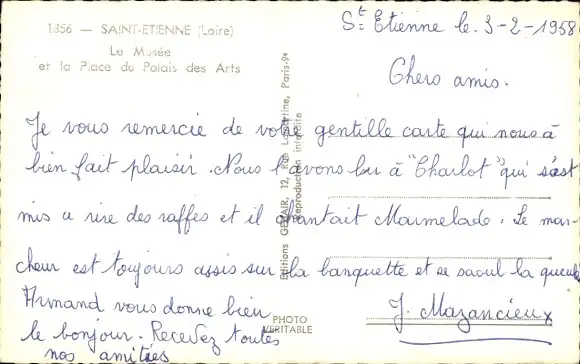 1356 — SAINT-ETIENNE (Loire)
Le Musée
et la Place du Palais des Arts
St Etienne le 3-2-1958
Chers amis.
Je vous remercie de votre gentille carte qui nous a
bien fait plaisir. Nous l'avons lu à "Charlot" qui s'est
mis a rire des raffes et il chantait Marmelade. Le mar-
cheur est toujours assis sur la banquette et se saoul la gueule
Armand vous donne bien
le bonjour. Recevez toutes
nos amitiés
J. Mazancieux
Editions 12, Rue Lamartine, Paris-9e
Reproduction interdite
PHOTO
VERITABLE